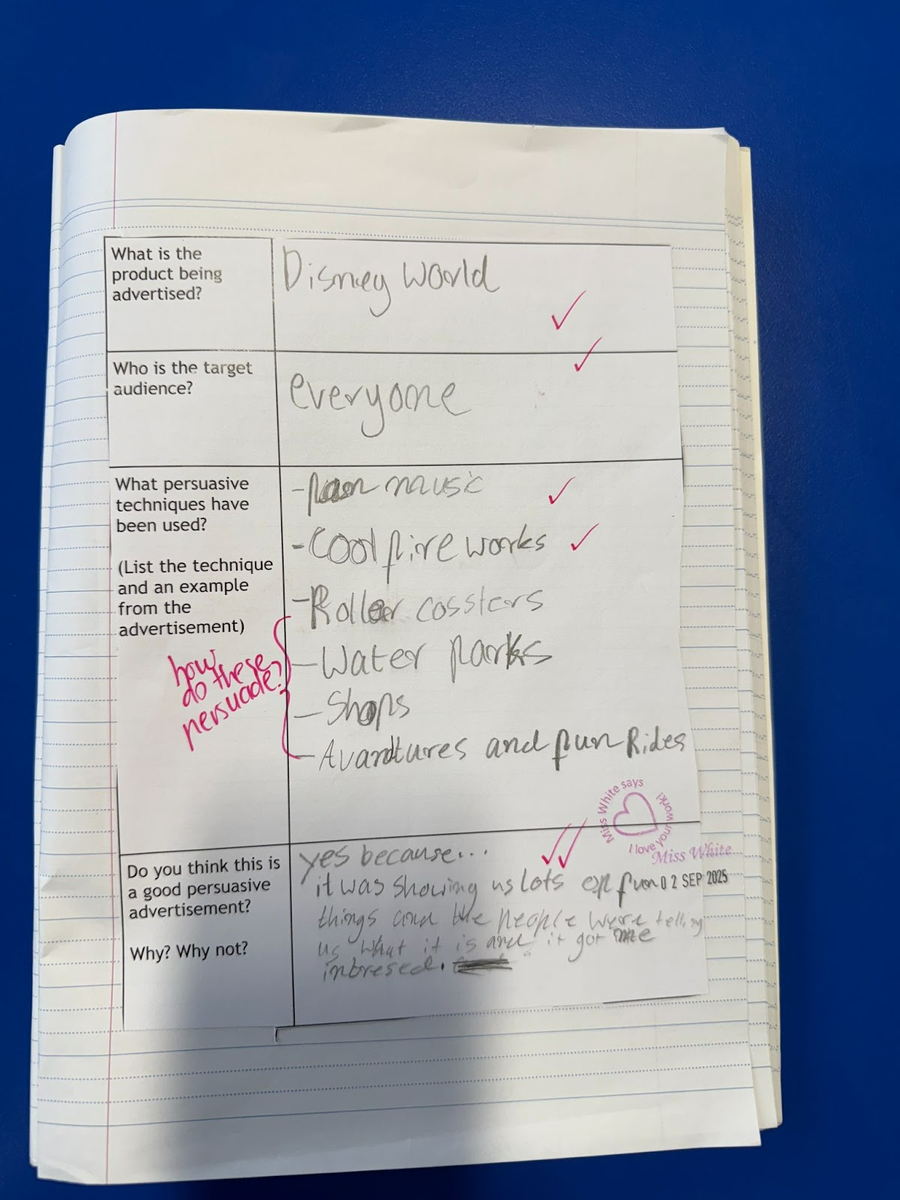 What is the
product being
advertised?
Disney world
Who is the target
audience?
everyone
What persuasive
techniques have
been used?
(List the technique
and an example
from the
advertisement)
- music
- Cool fire works
- Roller cossters
- Water parks
- Shops
- Avantures and fun Rides
how
do these
persuade?
Do you think this is
a good persuasive
advertisement?
Why? Why not?
yes because...
it was showing us lots of fun
things and the people were telling
us what it is and it got me
intresed.
Miss White says
I love your work!
Miss White
02 SEP 2025